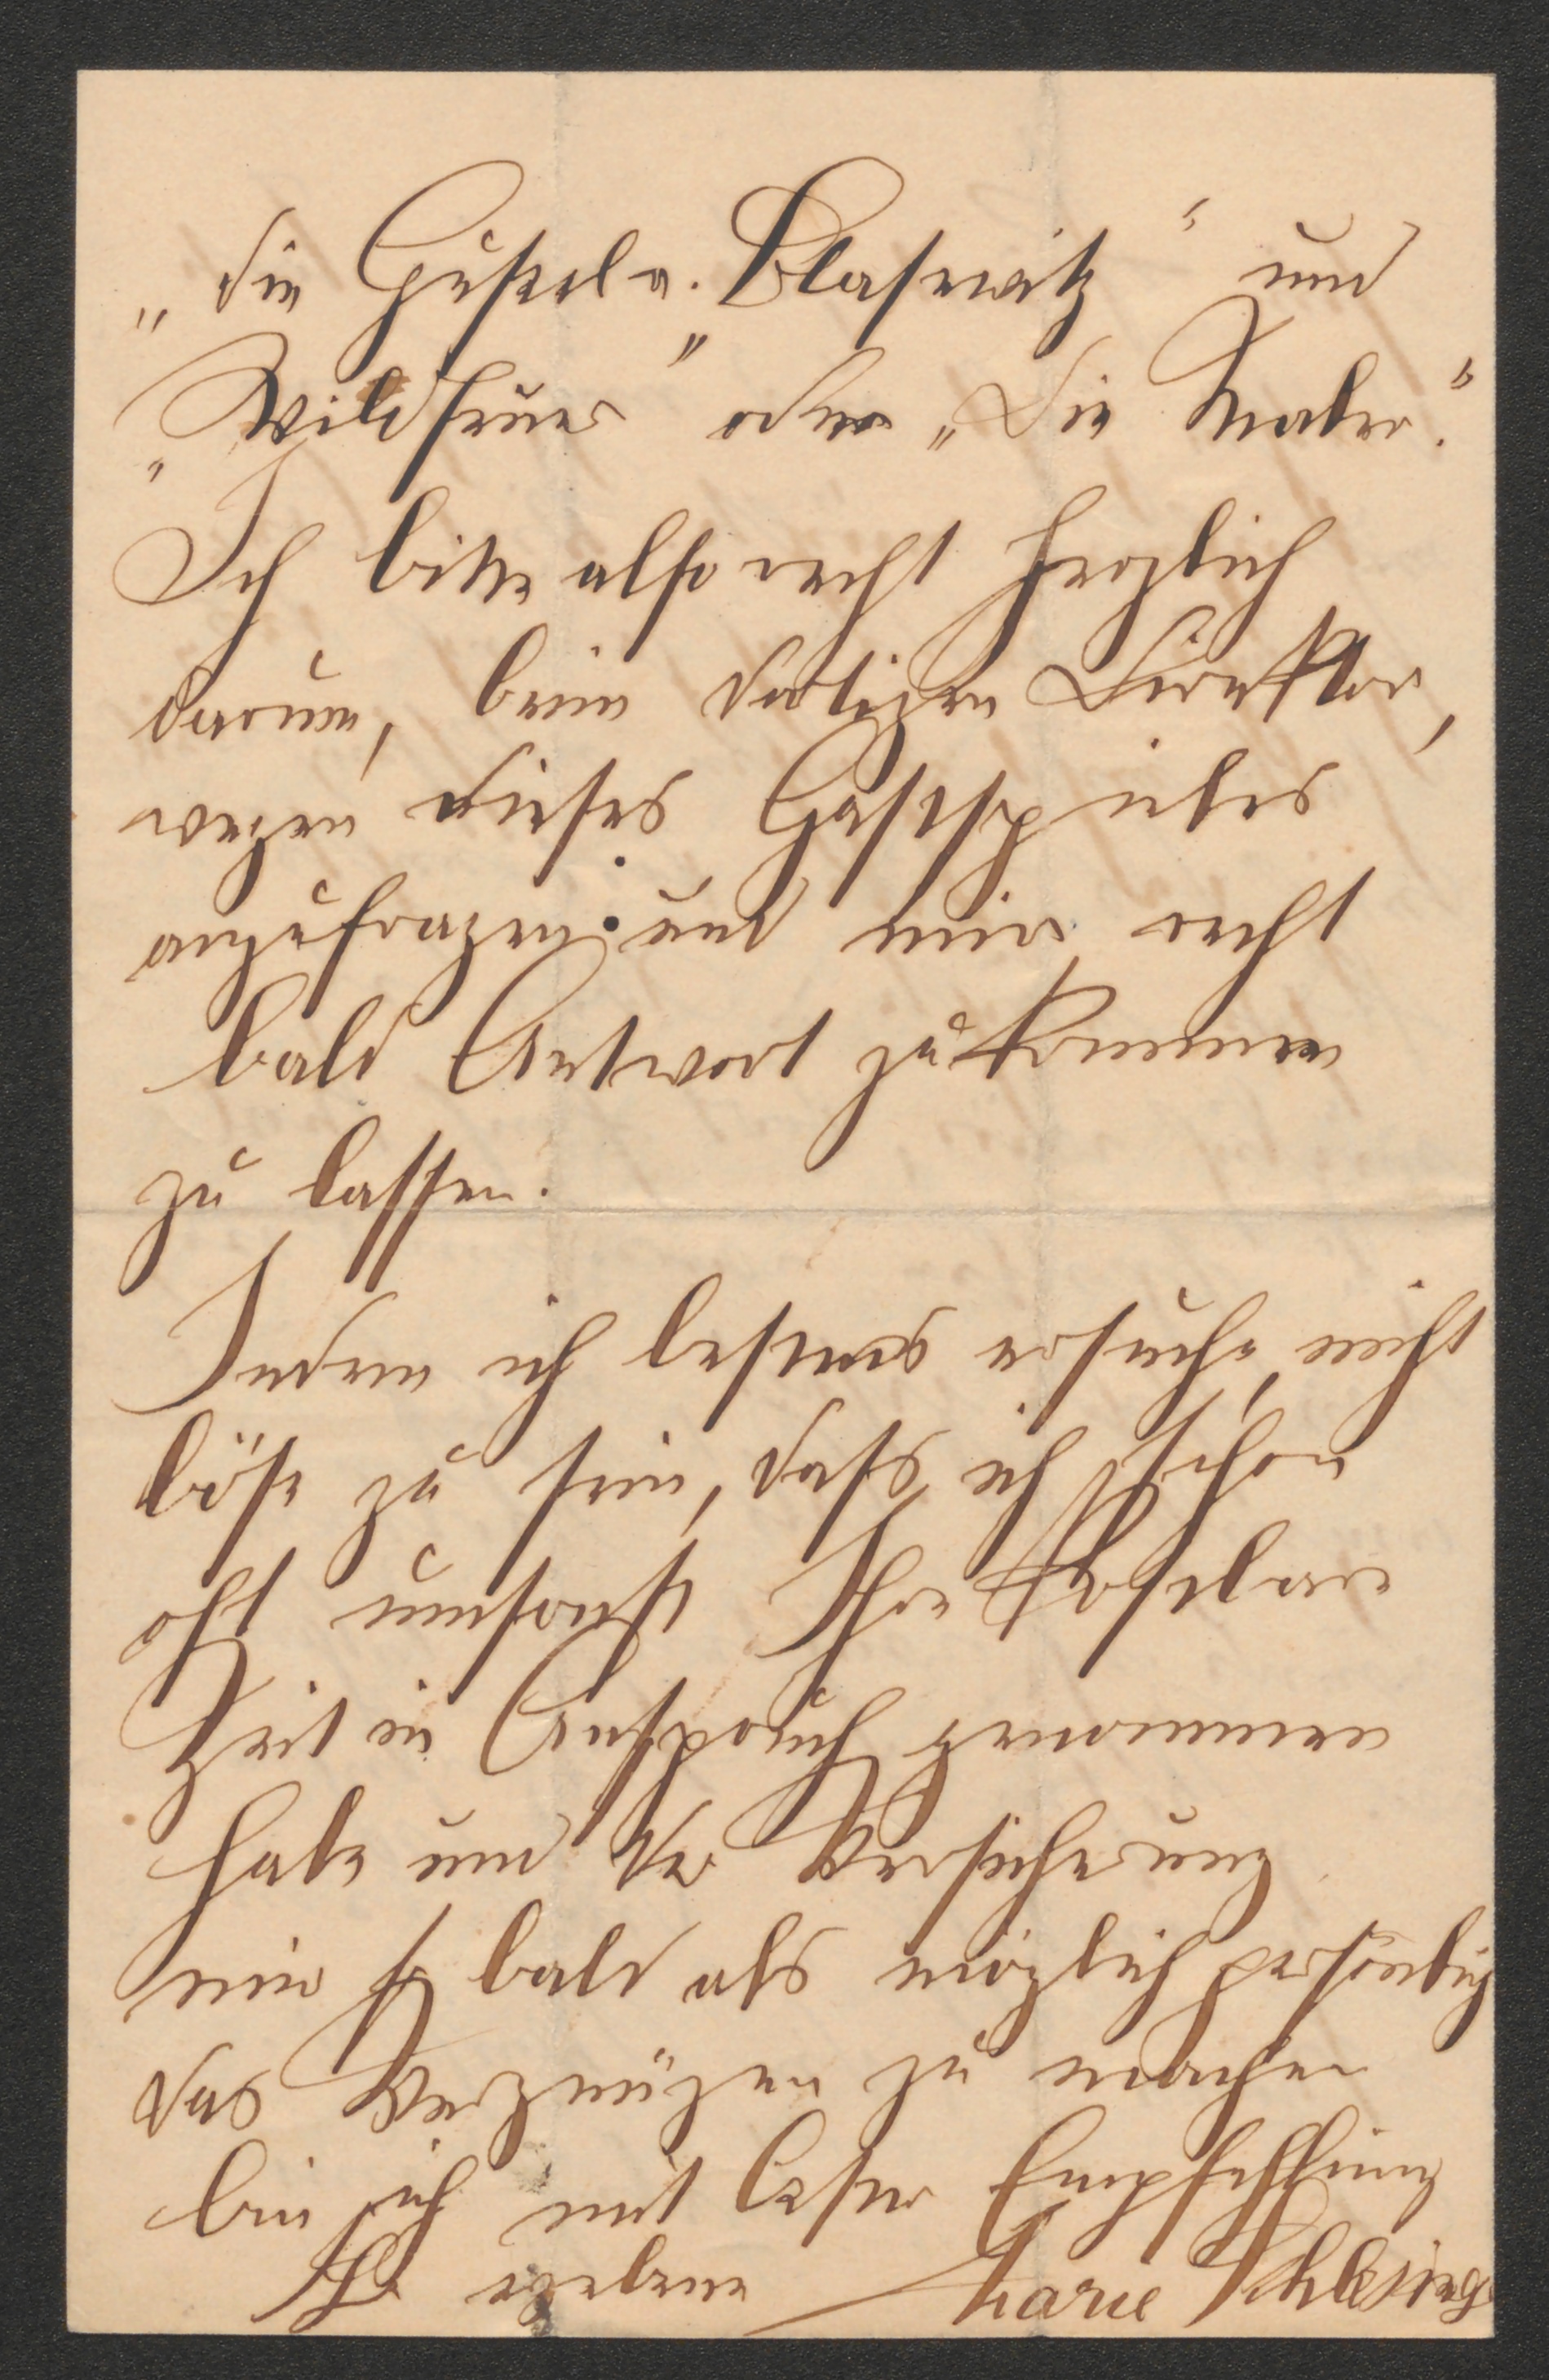 „Die Gustel v. Blasewitz" und
„Wildfeuer" oder „Die Maler".
Ich bitte also recht herzlich
darum, beim dortigen Direktor,
wegen dieses Gastspieles
anzufragen und mir recht
bald Antwort zukommen
zu lassen.
Indem ich bestens ersuche, nicht
böse zu sein, dass ich schon
oft umsonst Ihre kostbare
Zeit in Anspruch genommen
habe und der Versicherung
mir so bald als möglich persönlich
das Vergnügen zu machen
bin ich mit bester Empfehlung
Ihre ergebene Marie